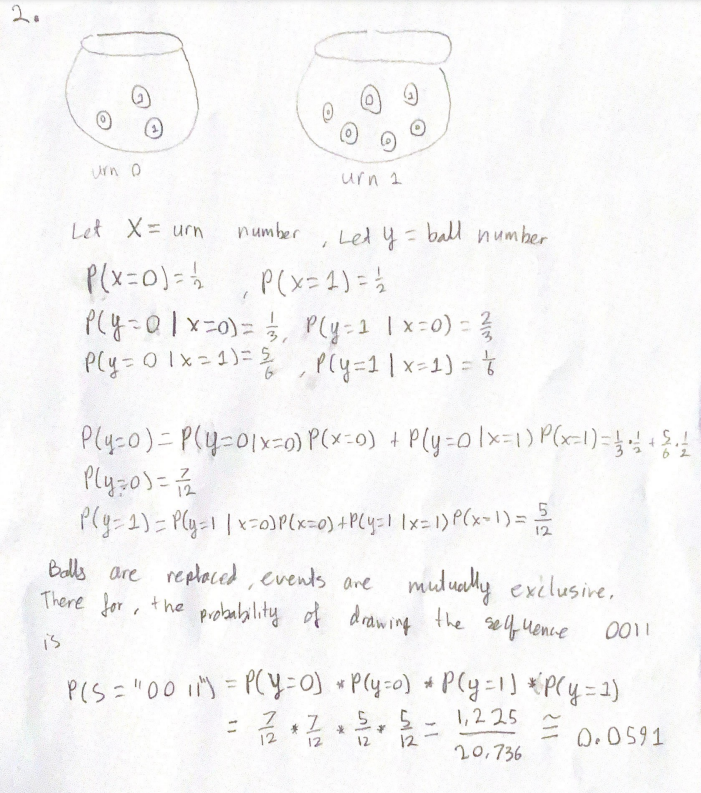 2.
1 0 1
0 0 1 0 0 0
urn 0
urn 1
Let X = urn number , Let y = ball number
P(x=0) = 1/2 , P(x=1) = 1/2
P(y=0 | x=0) = 1/3, P(y=1 | x=0) = 2/3
P(y=0 | x=1) = 5/6 , P(y=1 | x=1) = 1/6
P(y=0) = P(y=0|x=0) P(x=0) + P(y=0|x=1) P(x=1) = 1/3 · 1/2 + 5/6 · 1/2
P(y=0) = 7/12
P(y=1) = P(y=1 | x=0)P(x=0) + P(y=1 | x=1) P(x=1) = 5/12
Balls are replaced, events are mutually exclusive.
There for, the probability of drawing the sequence 0011
is
P(S = "0011") = P(y=0) * P(y=0) * P(y=1) * P(y=1)
= 7/12 * 7/12 * 5/12 * 5/12 = 1,225/20,736 ≅ 0.0591